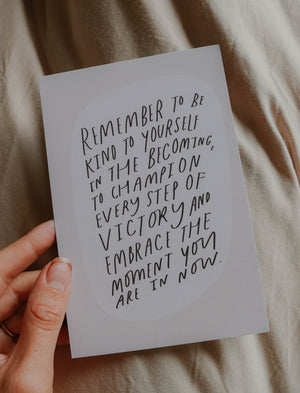 REMEMBER TO BE
KIND TO YOURSELF
IN THE BECOMING,
TO CHAMPION
EVERY STEP OF
VICTORY AND
EMBRACE THE
MOMENT YOU
ARE IN NOW.